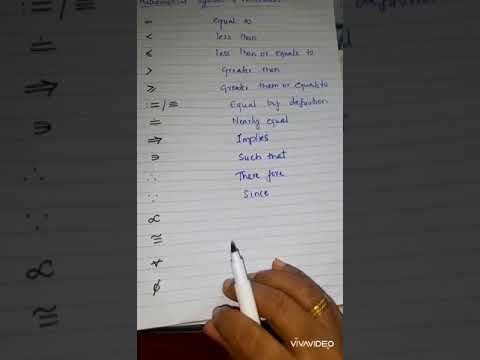 Mathematical symbols &
= equal to
< less than
≤ Less than or equals to
> Greater than
≥ Greater them or equals to
:=/≡ Equal by defination
≐ Nearly equal
⇒ Implies
∍ Such that
∴ There fore
∵ Since
∝
≅
∀
∅
:=/≡
≐
⇒
∍
∴
∵
∝
≅
VIVAVIDEO